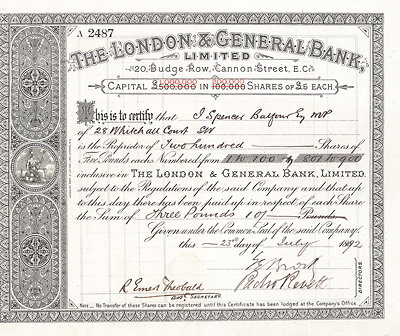 A 2487
THE LONDON & GENERAL BANK,
LIMITED
20, Budge Row, Cannon Street, E.C.
1,000,000 200,000
CAPITAL £500,000 IN 100,000 SHARES OF £5 EACH.
This is to certify that J Spencer Balfour Esq MP
of 28 Whitehall Court SW
is the Proprietor of Two hundred Shares of
Five Pounds each Numbered from 1 to 100 & 801 to 900
inclusive in THE LONDON & GENERAL BANK, LIMITED,
subject to the Regulations of the said Company and that up
to this day there has been paid up in respect of each Share
the Sum of Three Pounds 10/- Pounds.
Given under the Common Seal of the said Company,
this 23rd day of July 1892
R Ernest Theobald
SECRETARY
DIRECTORS.
Note.— No Transfer of these Shares can be registered until this Certificate has been lodged at the Company's Office.